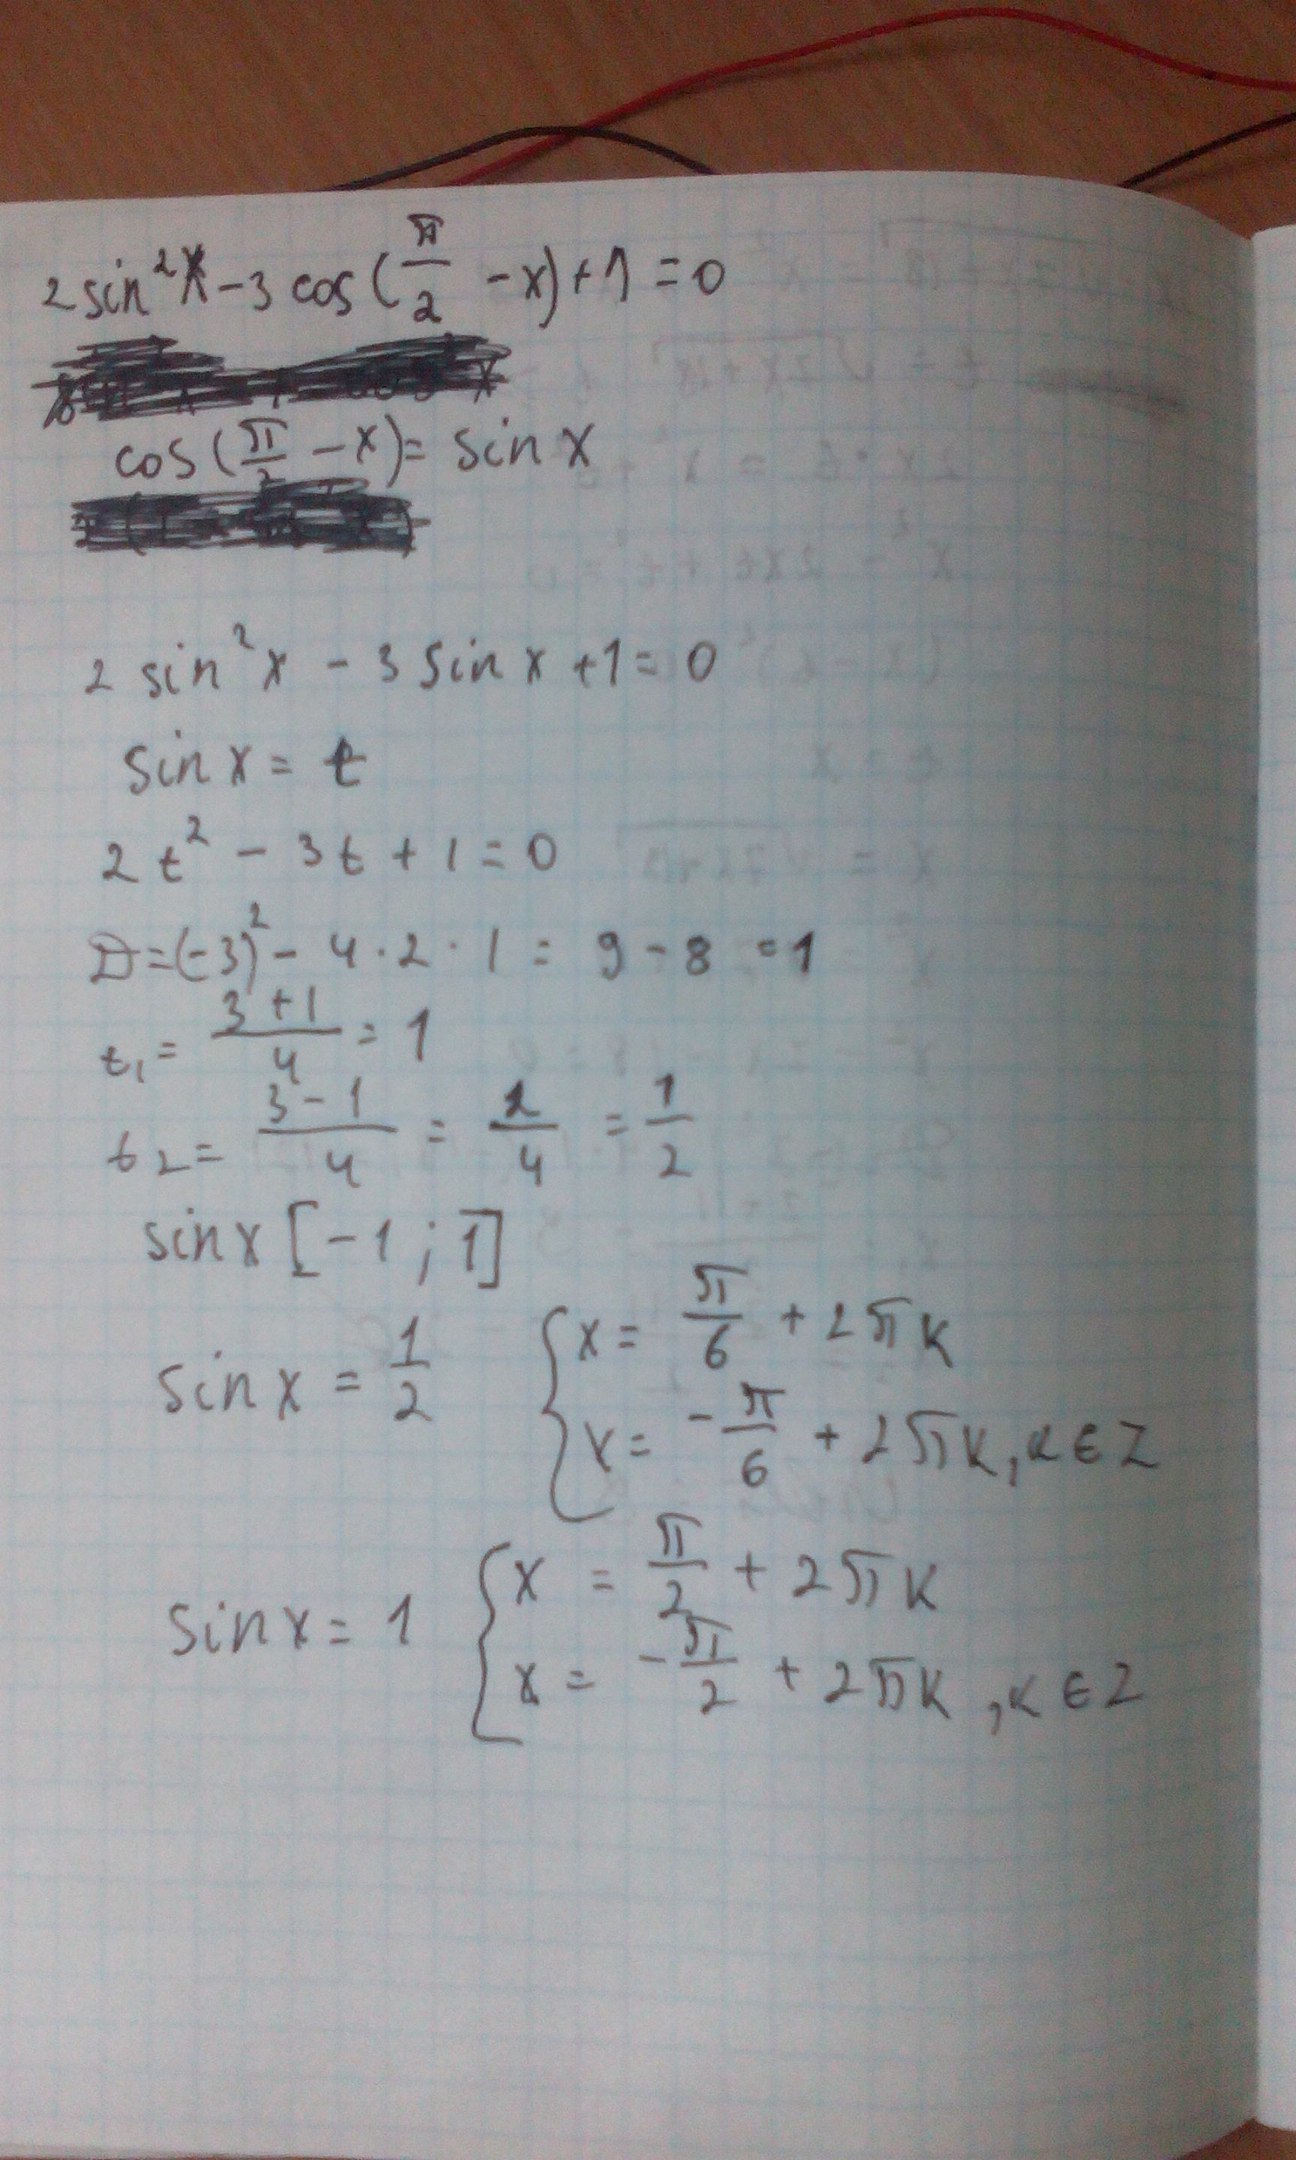 2 sin²x - 3 cos(π/2 - x) + 1 = 0
cos(π/2 - x) = sin x
2 sin²x - 3 sin x + 1 = 0
sin x = t
2t² - 3t + 1 = 0
D = (-3)² - 4 · 2 · 1 = 9 - 8 = 1
t₁ = (3 + 1)/4 = 1
t₂ = (3 - 1)/4 = 2/4 = 1/2
sin x [-1 ; 1]
sin x = 1/2 { x = π/6 + 2πk
x = -π/6 + 2πk, k ∈ Z
sin x = 1 { x = π/2 + 2πk
x = -π/2 + 2πk, k ∈ Z